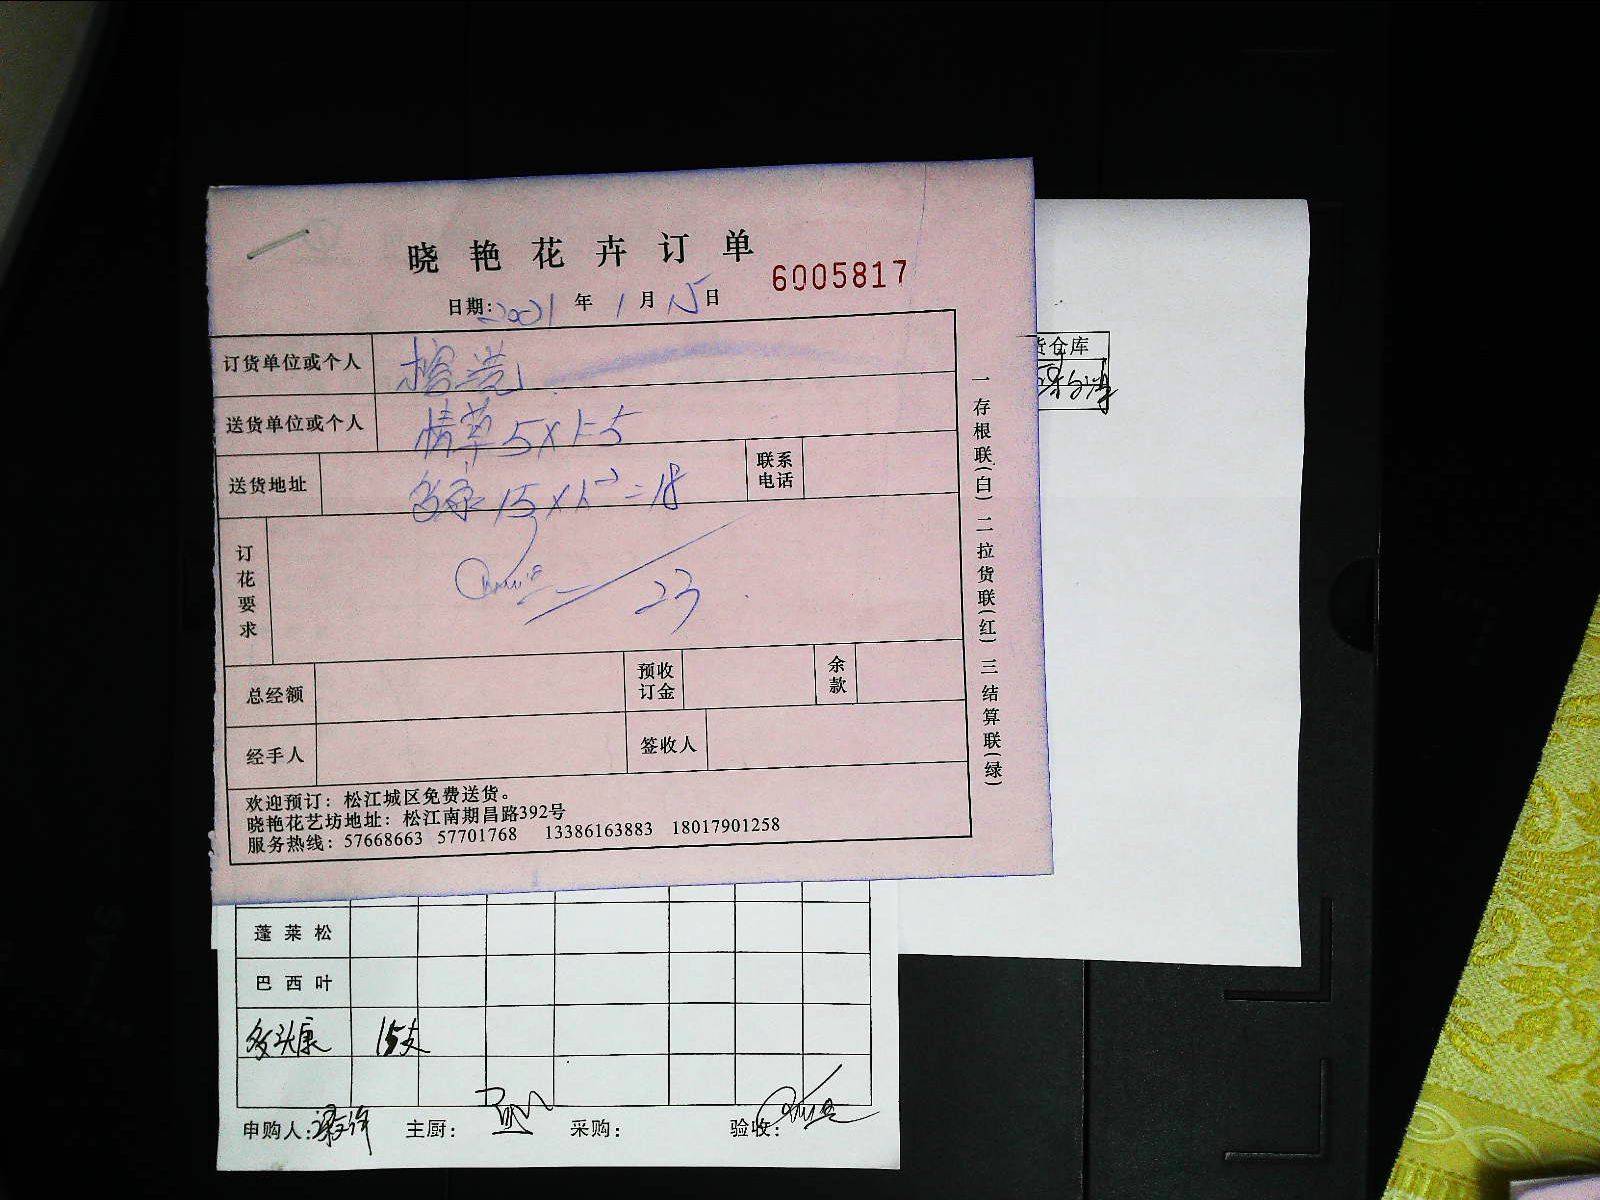 晓艳花卉订单
6005817
日期:2021年1月15日
订货单位或个人
送货单位或个人 情草 5×1=5
送货地址 多康 15×1.2=18 联系电话
订花要求
23
总经额 预收订金 余款
经手人 签收人
欢迎预订：松江城区免费送货。
晓艳花艺坊地址：松江南期昌路392号
服务热线：57668663 57701768 13386163883 18017901258
一存根联(白) 二拉货联(红) 三结算联(绿)
货仓库
蓬莱松
巴西叶
多头康 15支
申购人: 主厨: 采购: 验收: